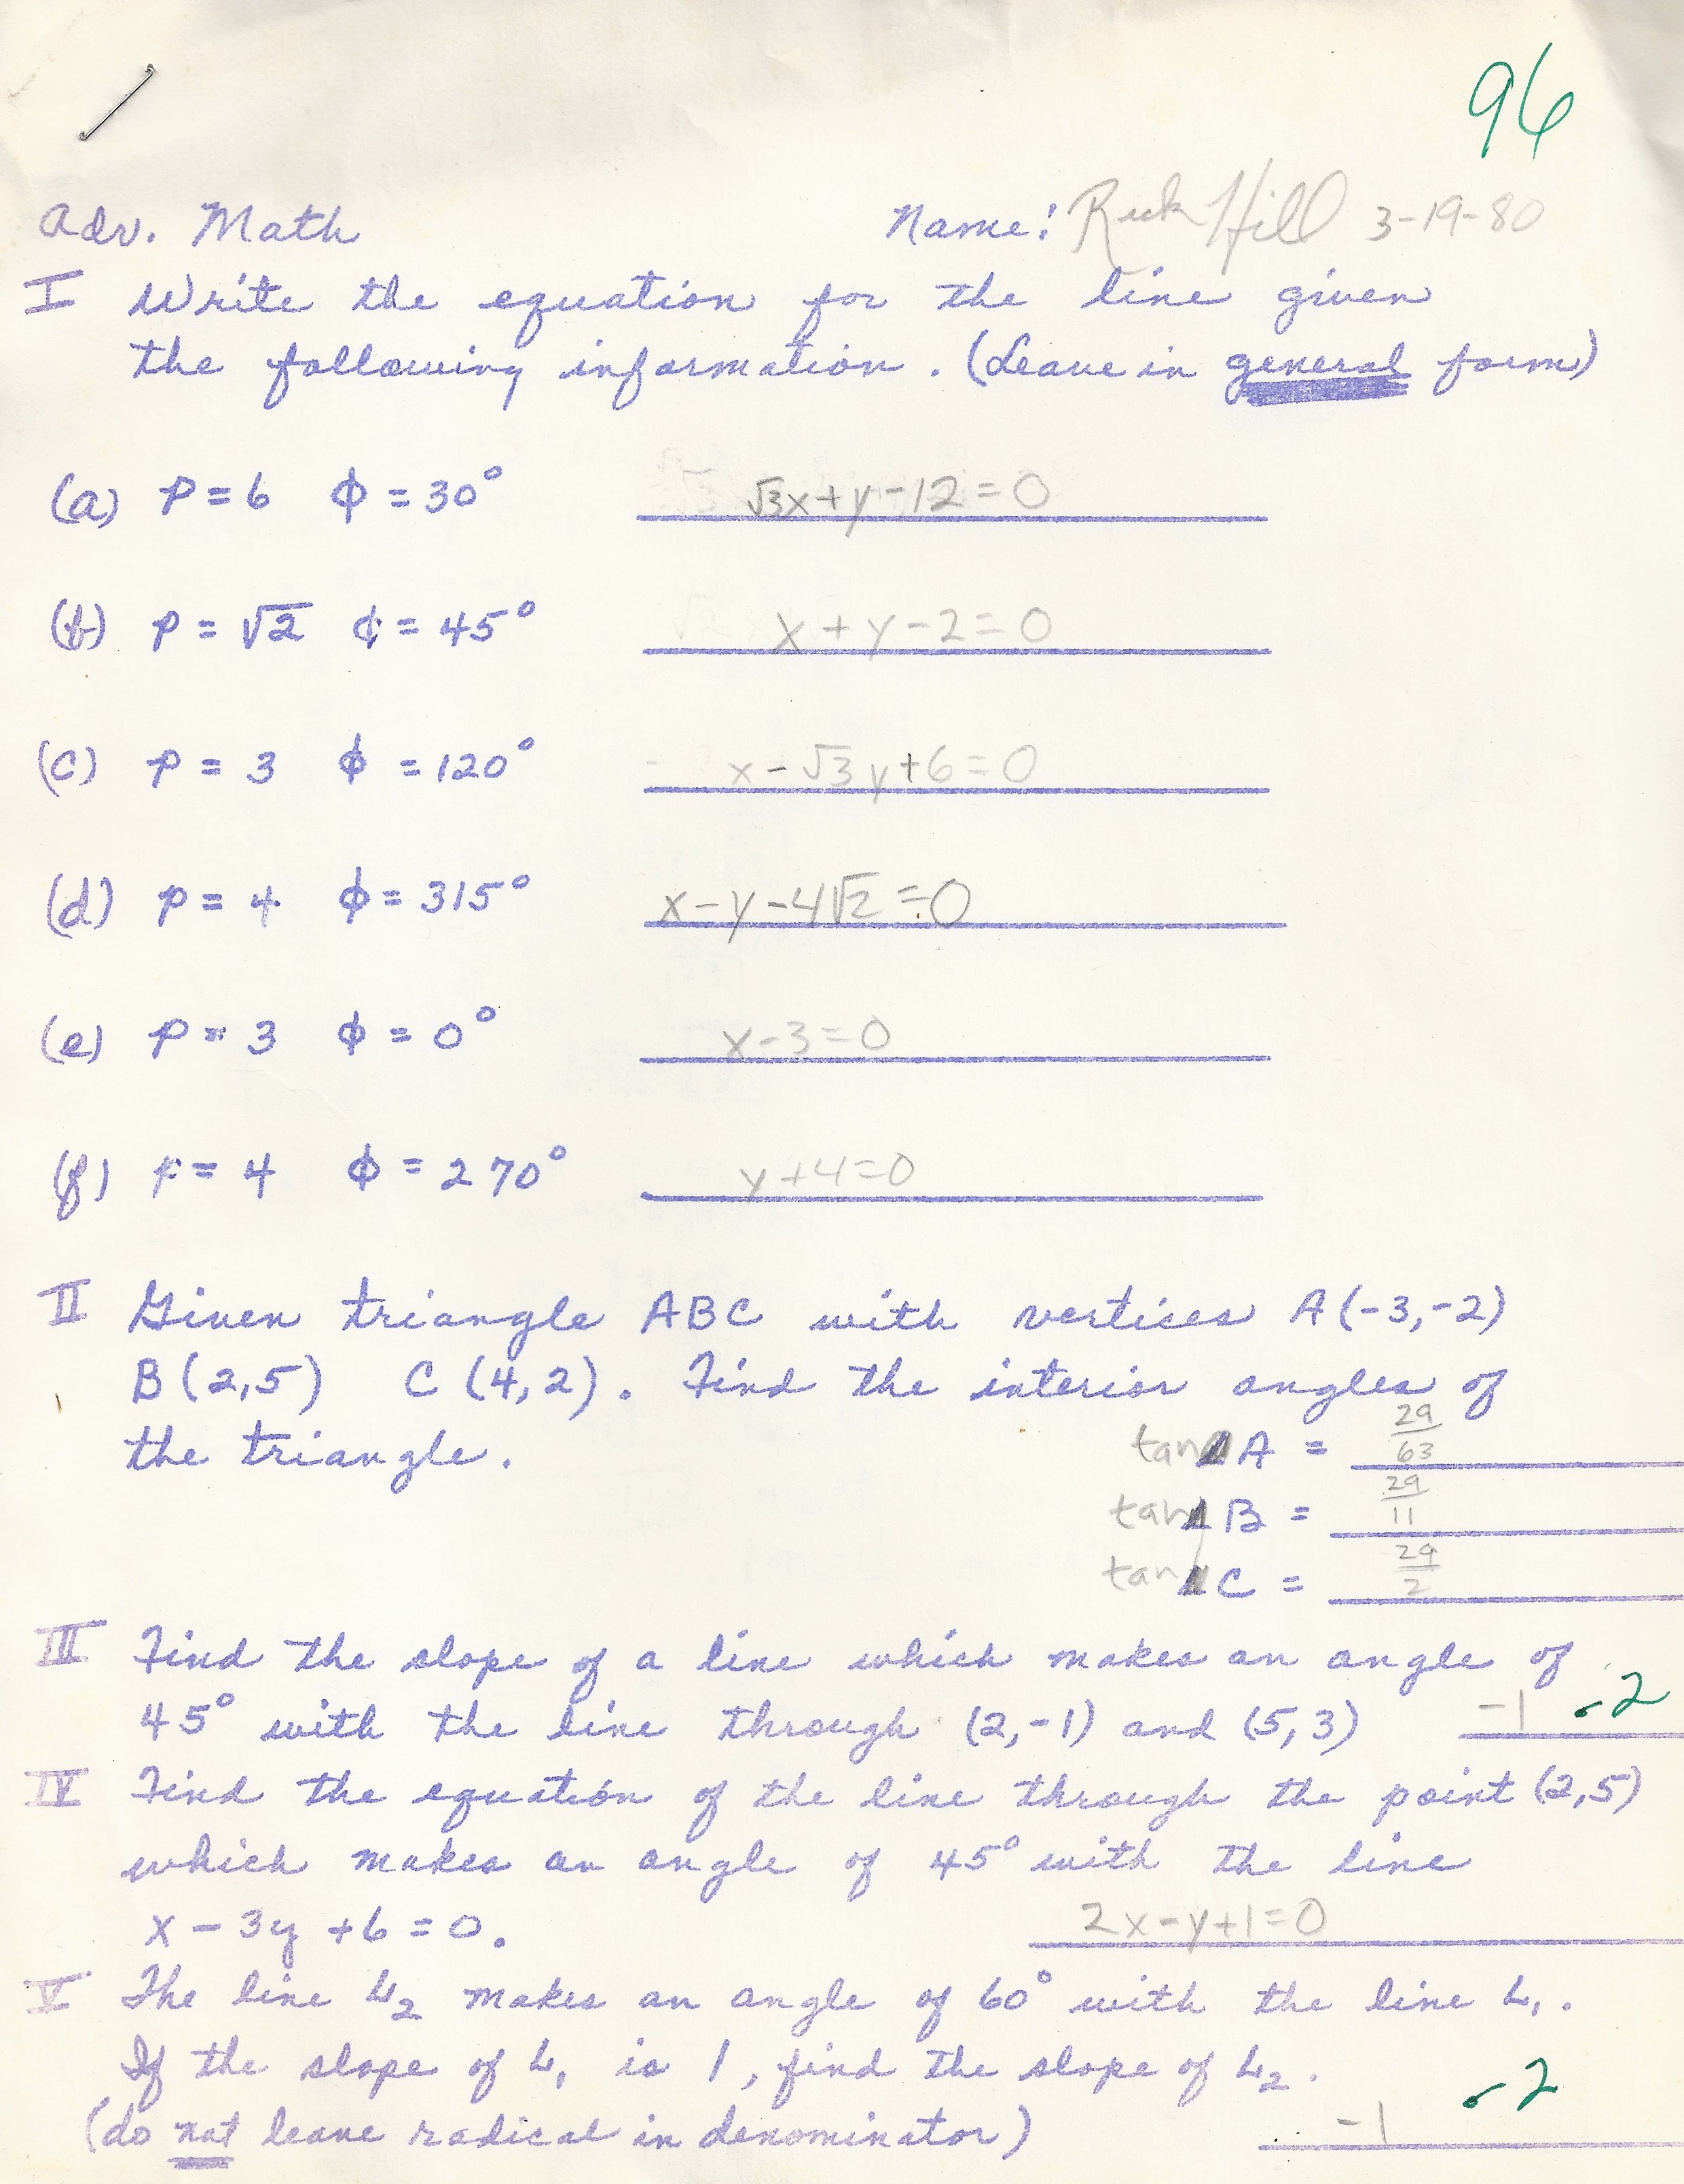 96
Adv. Math Name: Rick Hill 3-19-80
I Write the equation for the line given
the following information. (Leave in general form)
(a) p = 6 ϕ = 30° √3x+y-12=0
(b) p = √2 ϕ = 45° x+y-2=0
(c) p = 3 ϕ = 120° x-√3y+6=0
(d) p = 4 ϕ = 315° x-y-4√2=0
(e) p = 3 ϕ = 0° x-3=0
(f) p = 4 ϕ = 270° y+4=0
II Given triangle ABC with vertices A(-3,-2)
B(2,5) C(4,2). Find the interior angles of
the triangle. tan A = 29/63
tan B = 29/11
tan C = 29/2
III Find the slope of a line which makes an angle of
45° with the line through (2,-1) and (5,3) -1 -2
IV Find the equation of the line through the point (2,5)
which makes an angle of 45° with the line
x - 3y + 6 = 0. 2x-y+1=0
V The line L₂ makes an angle of 60° with the line L₁.
If the slope of L₁ is 1, find the slope of L₂.
(do not leave radical in denominator) -1 -2